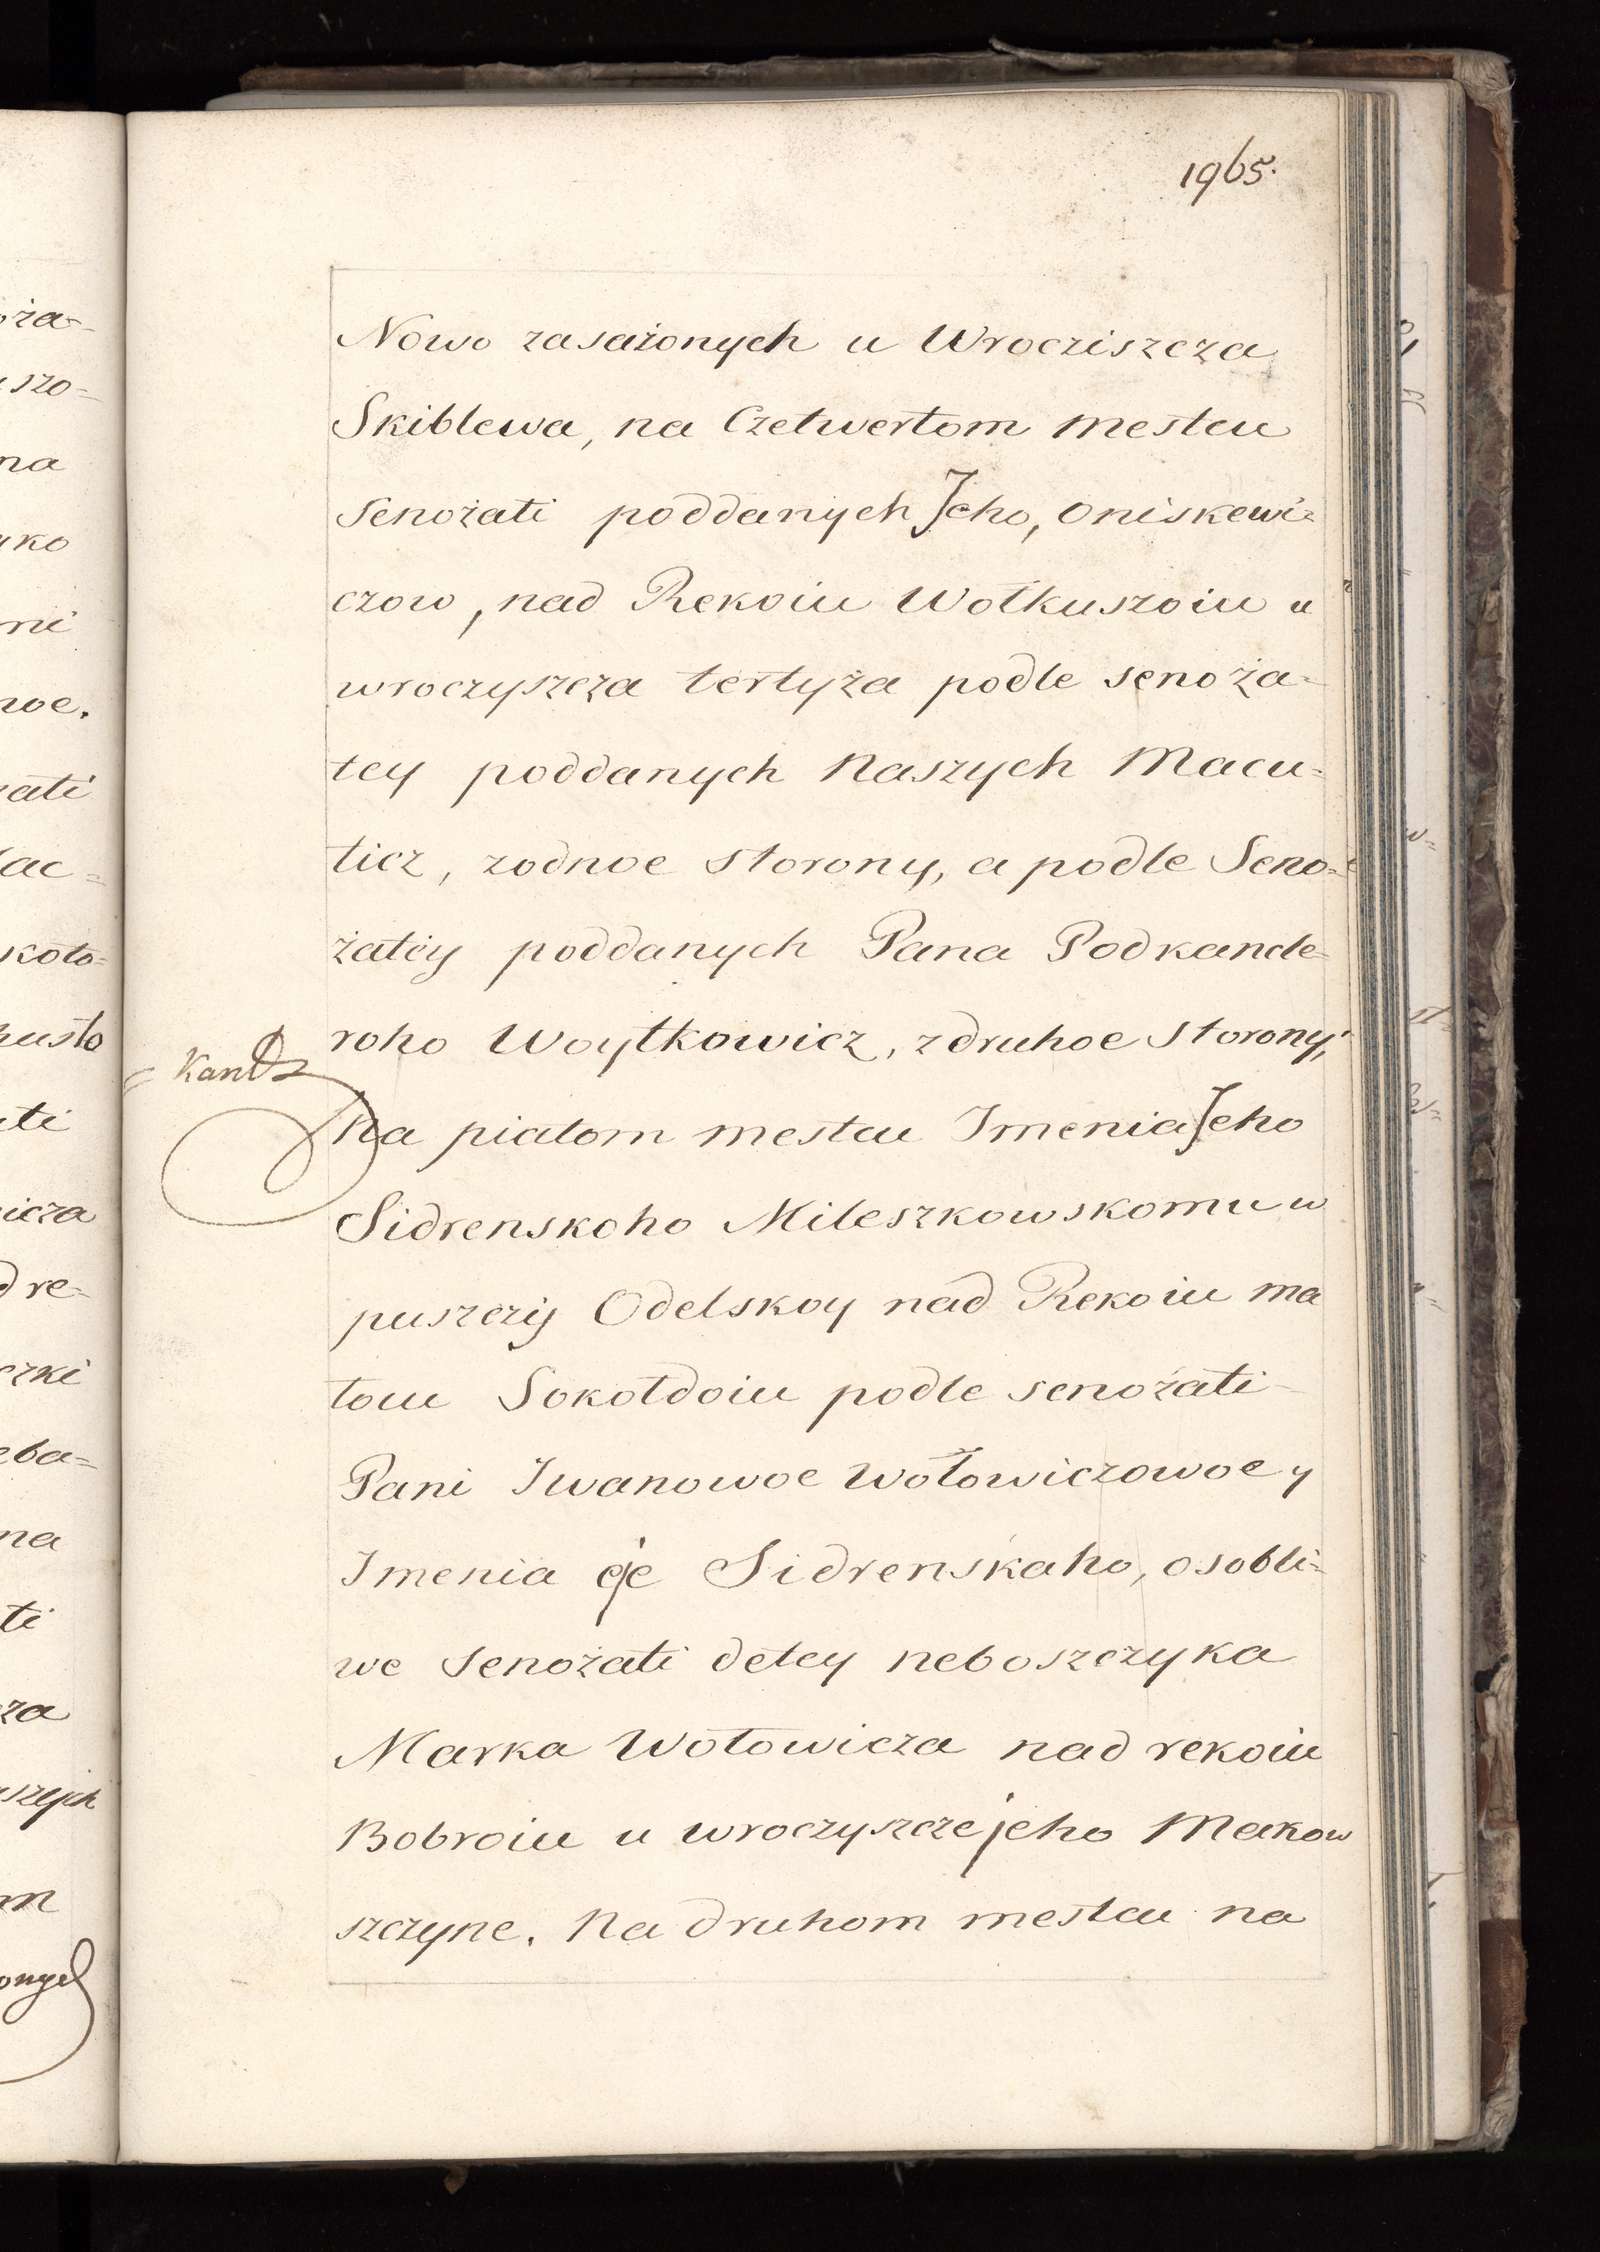 1965.
Nowo zasażonych u Wrocziszcza
Skiblewa, na Czetwertom mestcu
Senożati poddanych Jeho, Oniskewi=
czow, nad Rekoiu Wołkuszoiu u
wroczyszcza tertyża podle senoża=
tey poddanych Naszych Macu=
ticz, zodnoe storony, a podle Seno=
żatey poddanych Pana Podkancle=
roho Woytkowicz, zdruhoe storony,
Na piatom mestcu Imenia Jeho
Sidrenskoho Mileszkowskomu w
puszczy Odelskoy nad Rekoiu ma
łoiu Sokołdoiu podle senożati
Pani Iwanowoe Wołowiczowoe y
Imenia eje Sidrenskaho, osobli=
we Senożati detey neboszczyka
Marka Wołowicza nad rekoiu
Bobroiu u wroczyszcze jeho Makow
szczyne. Na druhom mestcu na